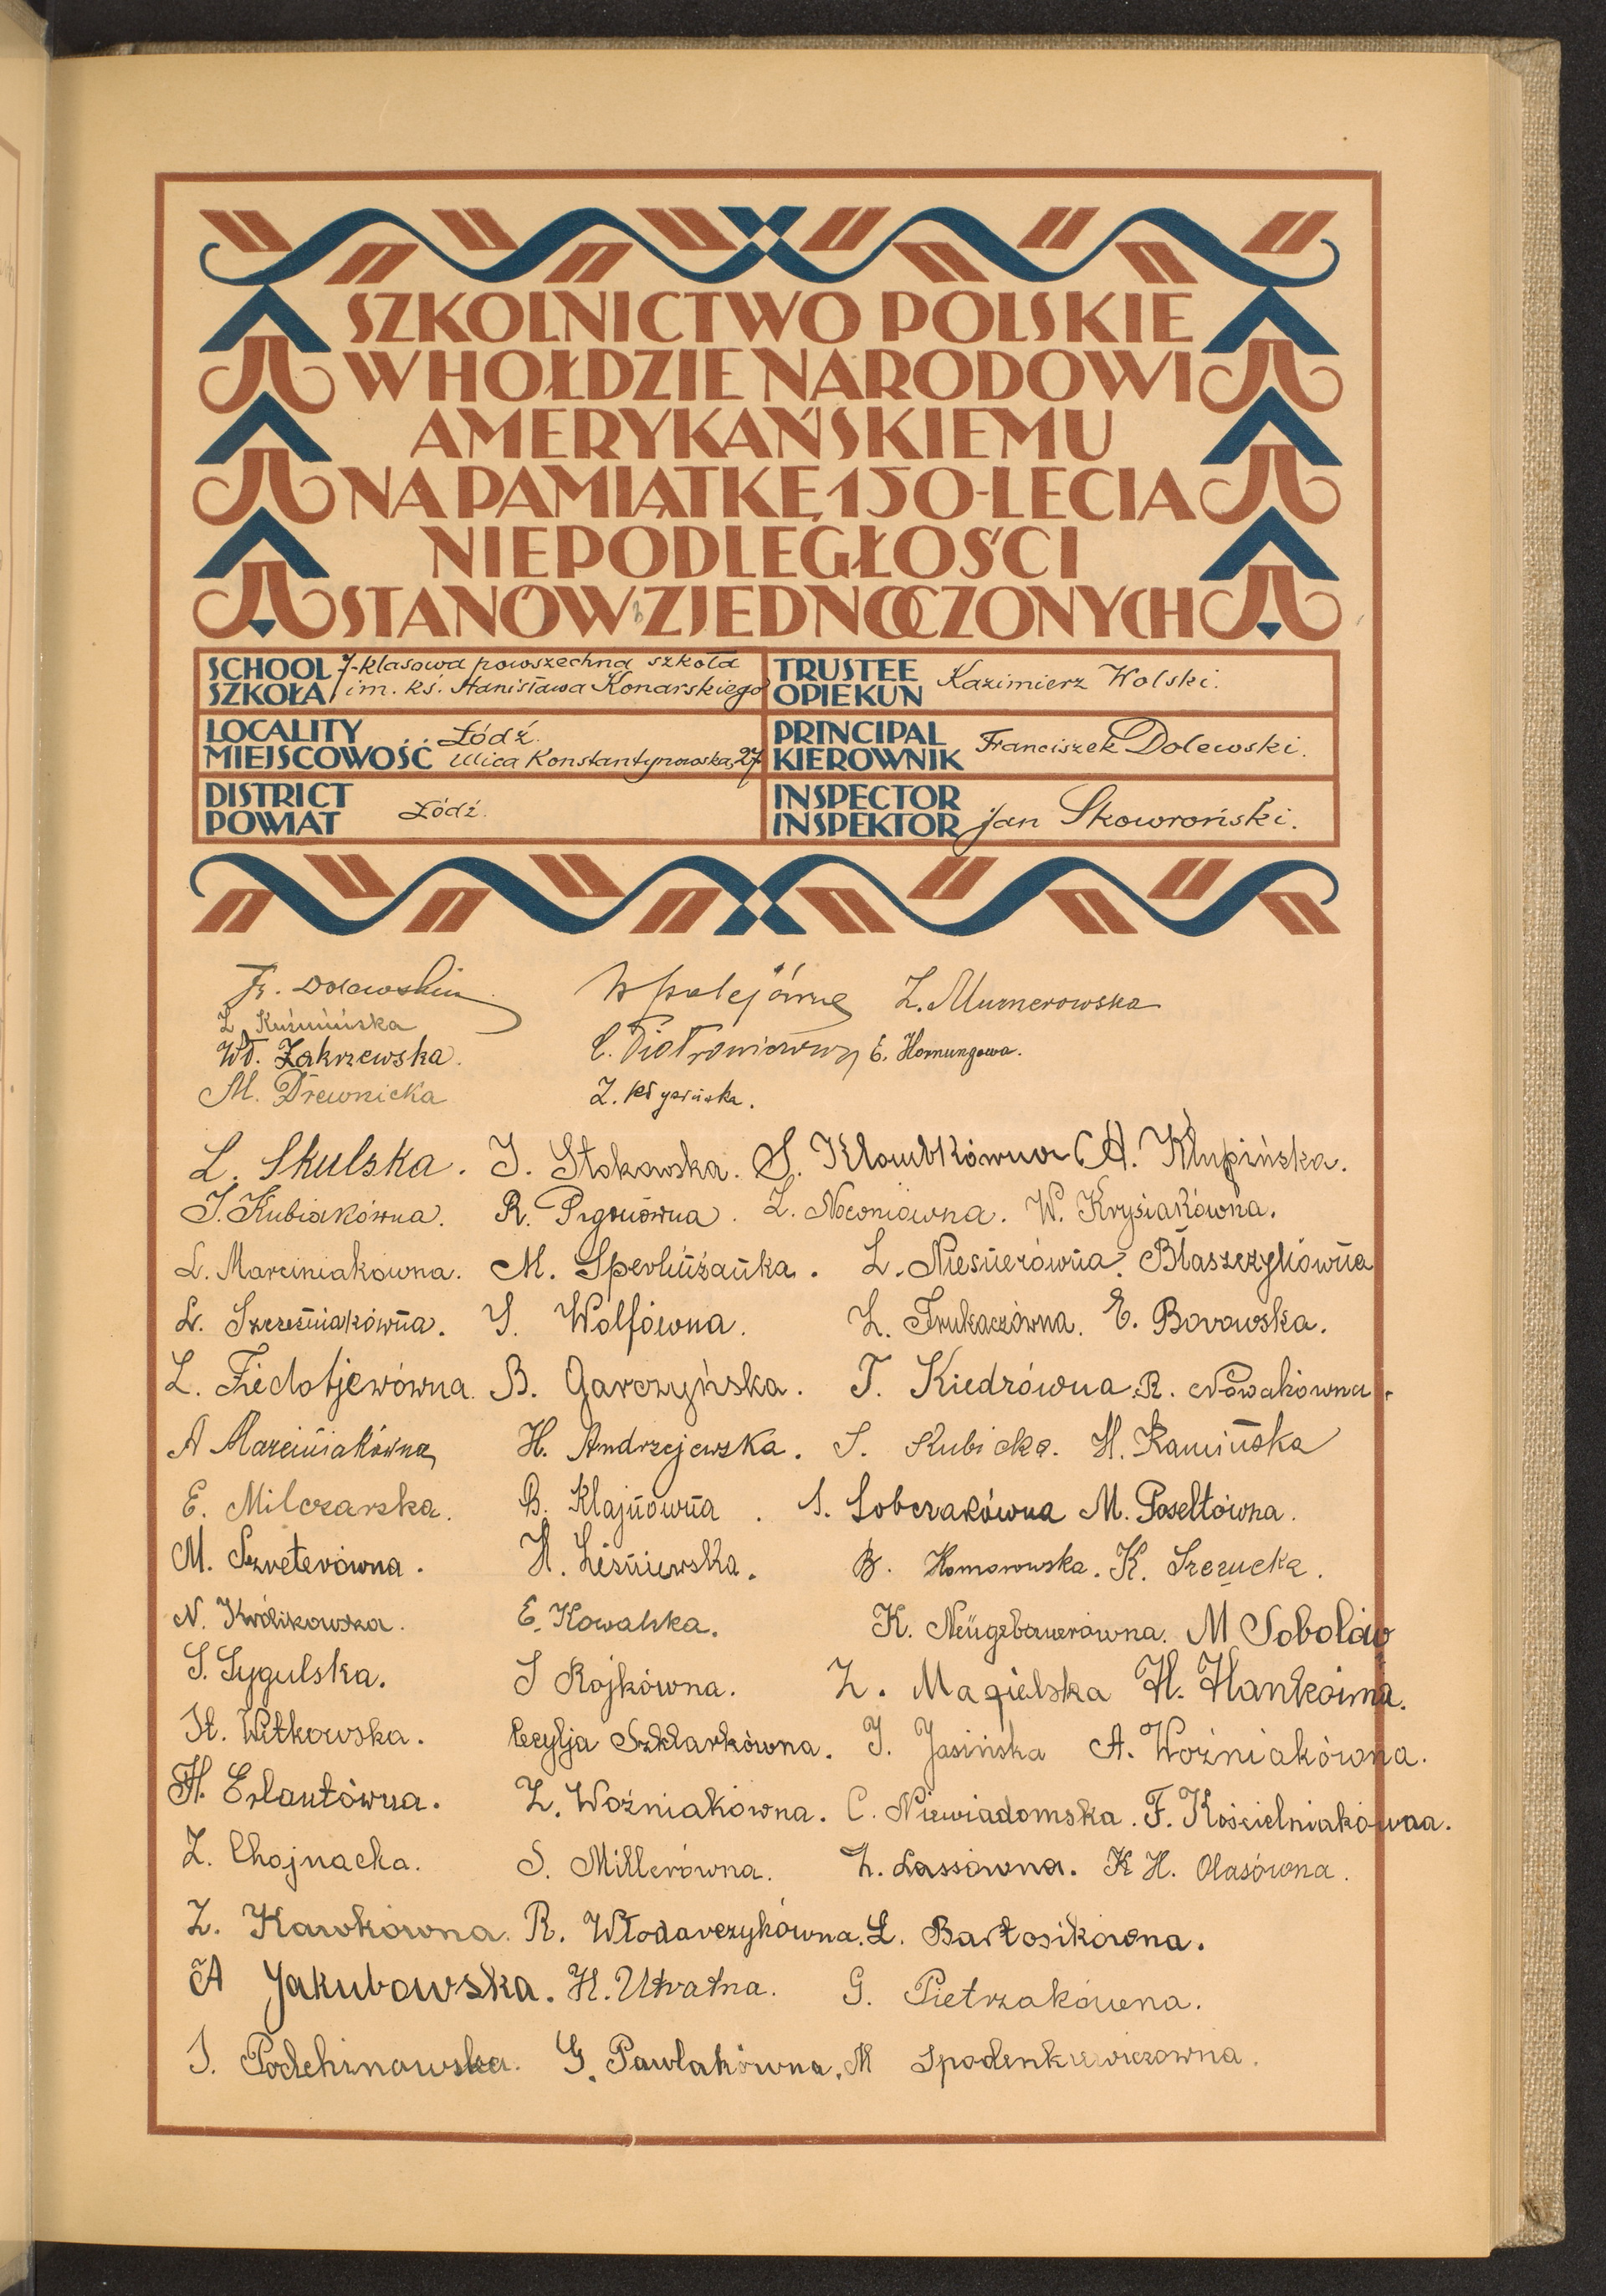 SZKOLNICTWO POLSKIE
W HOŁDZIE NARODOWI
AMERYKAŃSKIEMU
NA PAMIĄTKĘ 150-LECIA
NIEPODLEGŁOŚCI
STANÓW ZJEDNOCZONYCH
SCHOOL 7-klasowa powszechna szkoła
SZKOŁA im. ks. Stanisława Konarskiego
TRUSTEE
OPIEKUN Kazimierz Wolski.
LOCALITY Łódź.
MIEJSCOWOŚĆ ulica Konstantynowska, 27
PRINCIPAL
KIEROWNIK Franciszek Dolewski.
DISTRICT
POWIAT Łódź.
INSPECTOR
INSPEKTOR Jan Skowroński.
Fr. Dolewski L. Mumerowska
L. Kuźmińska
Wł. Zakrzewska. E. Hornungowa.
M. Drewnicka Z.
L. Skulska. J. Stokowska. S. Kłombkówna A. Klupińska.
J. Kubiakówna. R. Prgonówna. Z. Noconiówna. W. Krysiakówna.
L. Marciniakówna. M. Sperlinżanka. L. Niesnerówna. Błaszczykówna
L. Szcześniakówna. S. Wolfówna. Z. Trukaczówna. E. Borowska.
L. Fiedotjewówna. B. Garczyńska. T. Kiedrówna. R. Nowakówna.
A Marciniakówna H. Andrzejewska. S. Kubicka. H. Kamińska
E. Milczarska. B. Klajnówna. S. Sobczakówna M. Poseltówna.
M. Szreterówna. H. Leśniewska. B. Komorowska. K. Szczucka.
N. Królikowska. E. Kowalska. K. Neügebauerówna. M Sobolów
S. Sygulska. S Rojkówna. Z. Magielska H. Hankówna.
H. Witkowska. Cecylja Szklarkówna. J. Jasińska A. Woźniakówna.
H. Erlautówna. Z. Woźniakówna. C. Niewiadomska. F. Kościelniakówna.
Z. Chojnacka. S. Millerówna. Z. Lassówna. K H. Olasówna.
Z. Kawkówna. R. Włodarczykówna. L. Bartosikówna.
A Jakubowska. H. Utratna. G. Pietrzakówna.
S. G. Pawlakówna. M Spodenkiewiczowna.